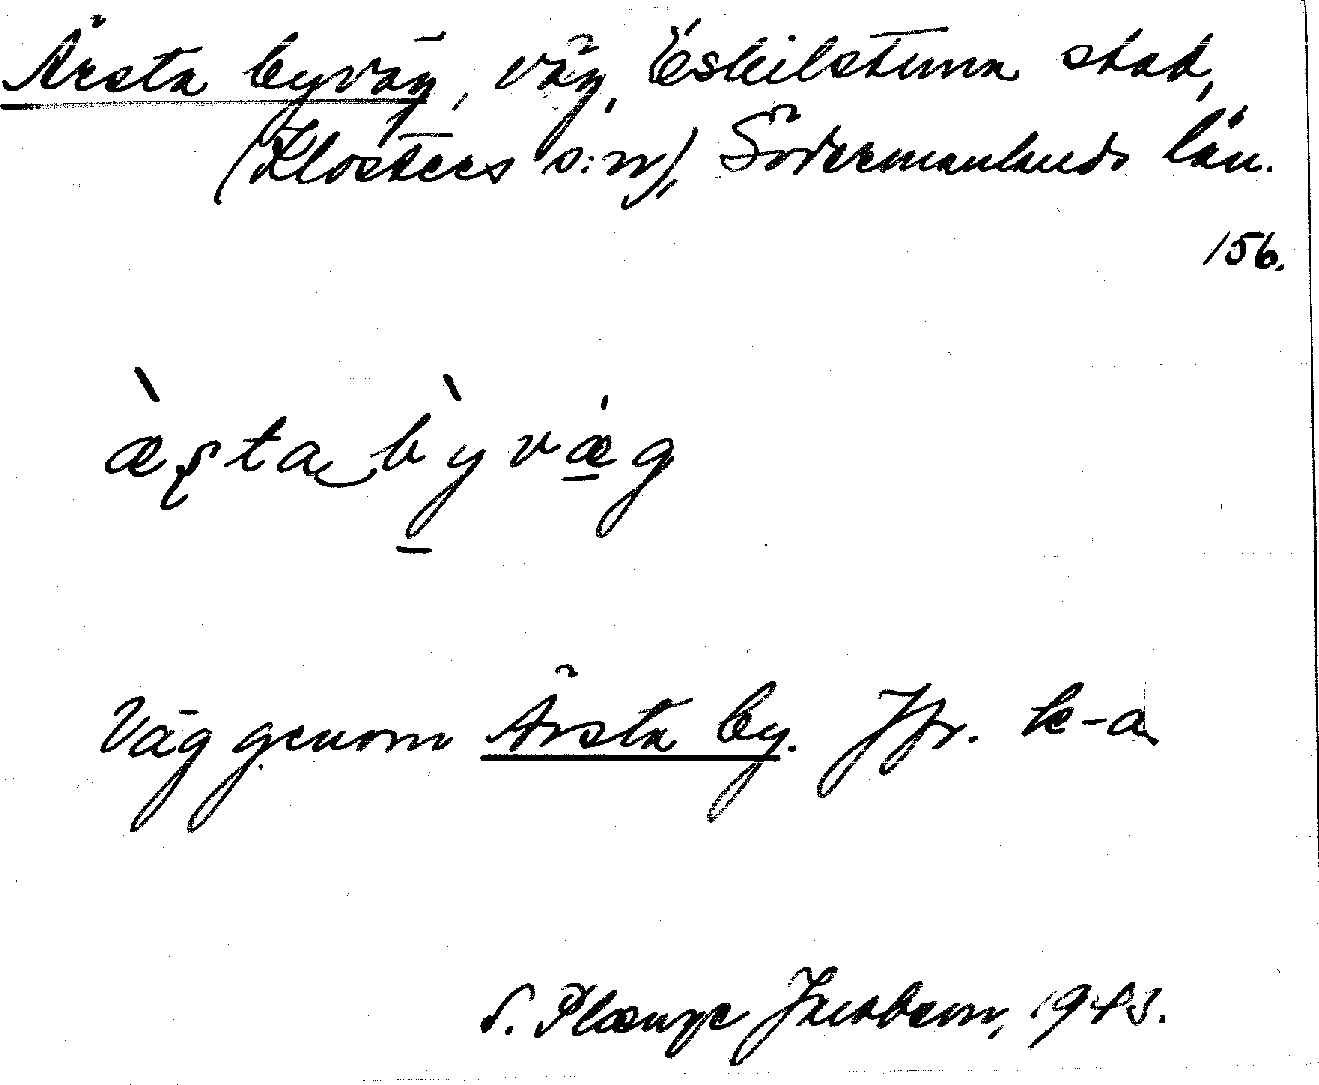 Ärsta byväg, väg, Eskilstuna stad,
(Klosters s:n), Södermanlands län.
156.
æ̀ṣta‿bỳvæ̠g
Väg genom Ärsta by. Jfr. k-a
S. Plænge Jacobson, 1943.